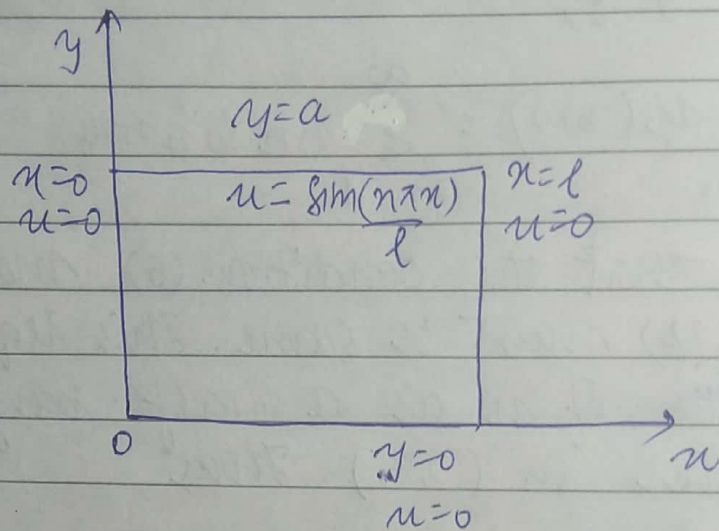 y
y=a
x=0
u=0
u= sin(nπx)
l
x=l
u=0
0
y=0
x
u=0